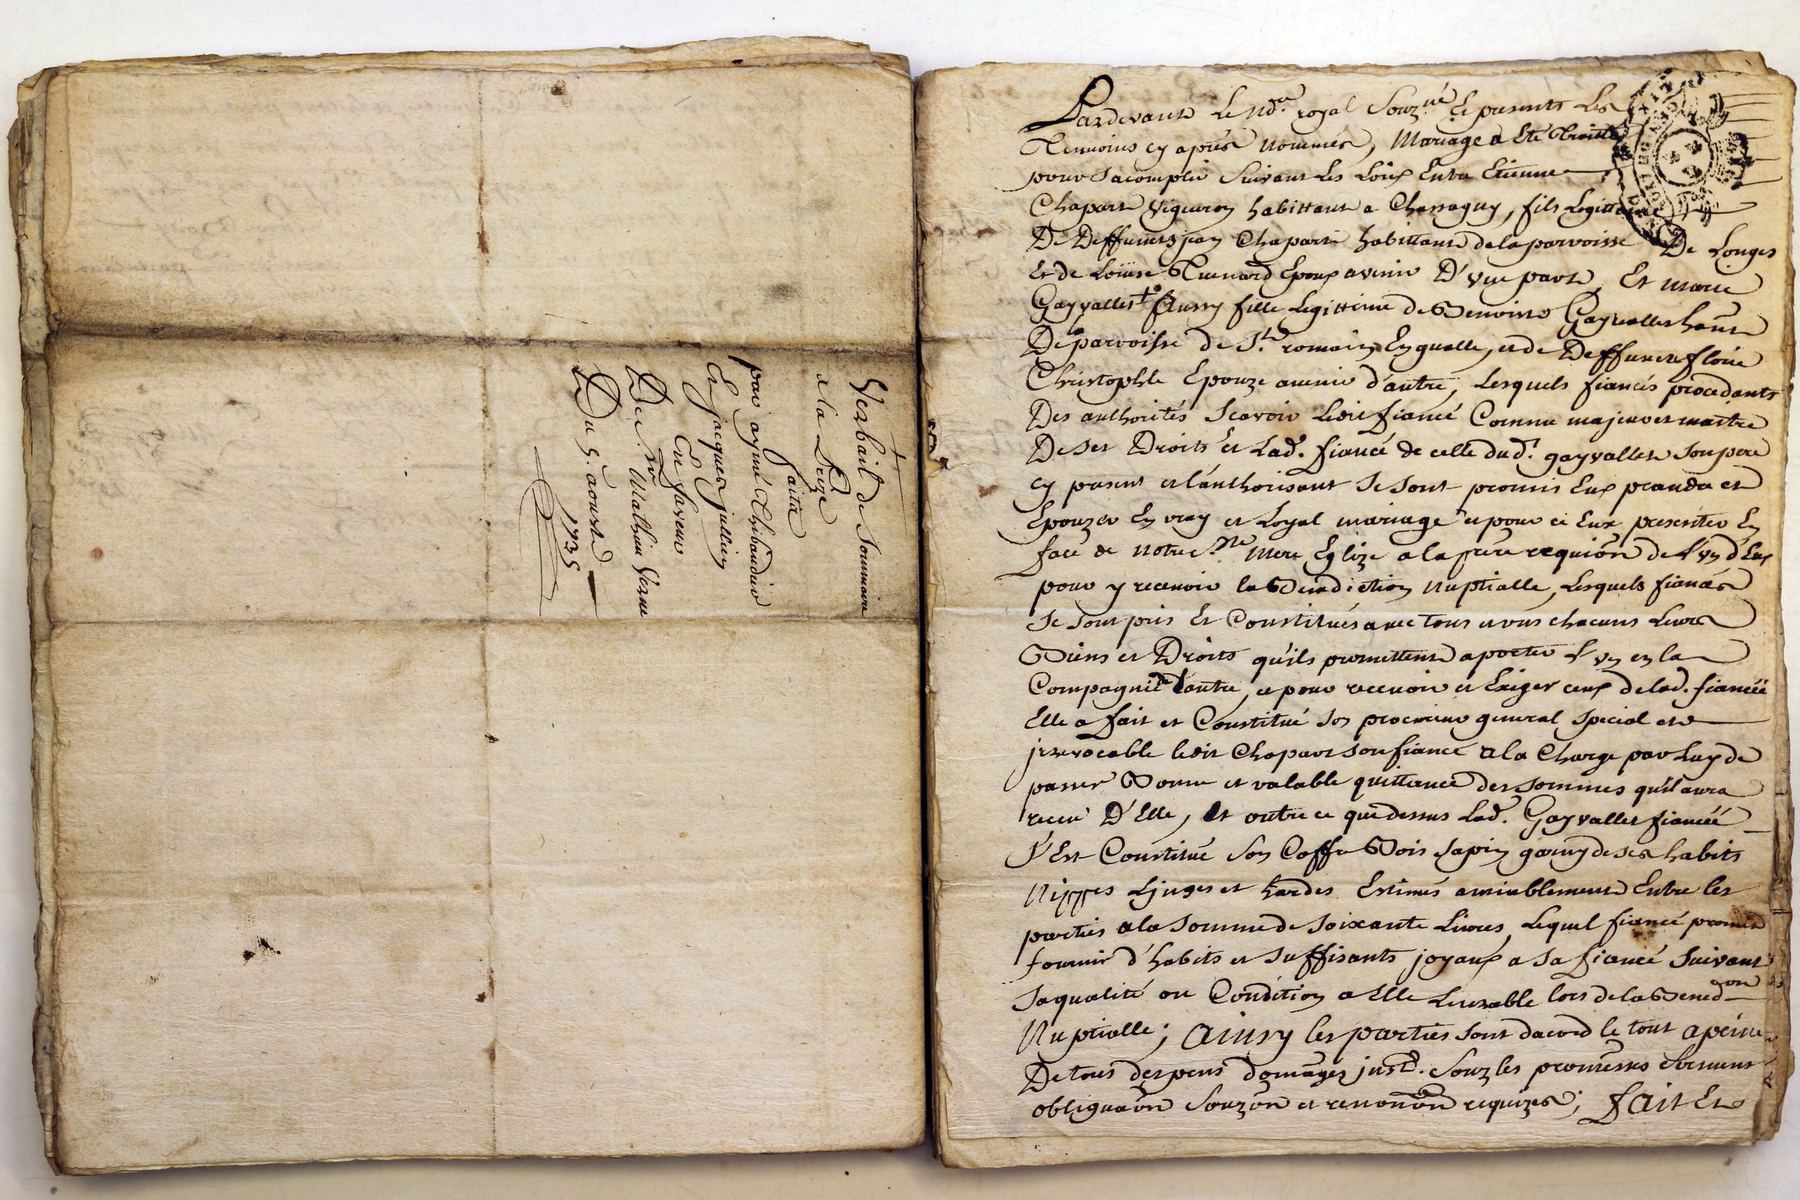 Verbail de Sommaire
a la Leize
faitte
par aymé Thibaudier
Et jacques jullien
En faveur
De Sr. Mathieu Verne
Du 5. aoust
1735
Pardevant Le Nore. royal Souzné. Et presents Les
Temoins cy après nommés, Mariage a Eté Traitté
pour Sacomplir Suivant Les Loix Entre Etienne
Chapart Vigneron habittant a Chassagny, fils Legitime
De Deffunts jean Chapart habittant de la parroisse De Longes
Et de Loüise Renard Epoux avenir D'vne part, Et Marie
Gayvallet + aussy fille Legittime de Benoist Gayvallet hant
De parroisse de St. romain En , et de Deffuncte florie
Christophle Epouze avenir d'autre, Lesquels fiancés procedants
Des authorités Scavoir Ledit fiancé Comme majeur et maitre
De Ses Droits et Lad. fiancé de celle dud. gayvallet Son pere
cy present et l'authorisant Se Sont promis Eux prendre et
Epouzer En vray et Loyal mariage et pour ce Eux presenter En
face de notre Ste. Mere Eglize a la pre. requion de L'vn d'Eux
pour y recevoir la Benediction Nuptialle, Lesquels fiancés
Se Sont pris Et Constitués avec tous et vns chacuns Leurs
Biens et Droits qu'ils promettent aporter L'vn en la
Compagnie de Lautre, et pour recevoir et Exiger ceux de lad. fiancéé
Elle a fait et Constitué Son procureur general Special et
jrrevocable ledit Chapart Son fiancé a la Charge par Luy de
passer Bonne et valable quittance des Sommes qu'il aura
receu D'Elle, Et outre ce que dessus Lad. Gayvallet fiancéé
S'Est Constitué Son Coffre Bois Sapin garny de Ses habits
Nippes Linges et hardes Estimés amiablement Entre les
parties a la Somme de Soixante Livres, Lequel fiancé promet
fournir d'habits et Suffisants joyaux a Sa fiancé Suivant
Sa qualité ou Condition a Elle Livrable lors de la Benedon
Nuptialle; Ainsy les parties Sont dacord le tout a peine
De tous despens domages justs. Souz les promesses
obligaon Souzon et renonon requizes; fait Et